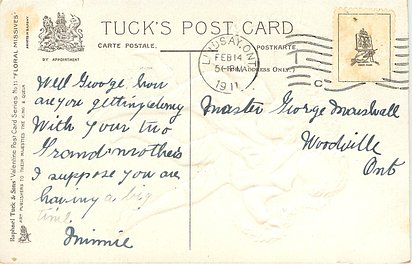 TUCK'S POST CARD
CARTE POSTALE.
POSTKARTE.
BY APPOINTMENT
(FOR ADDRESS ONLY.)
LINDSAY, ONT
FEB 14
1911
C
Well George, how
are you getting along
With your two
Grand-mothers
I suppose you are
having a big
time.
Minnie
Master George Marshall
Woodville
Ont
Raphael Tuck & Sons' Valentine Post Card Series No. 11 "FLORAL MISSIVES"
ART PUBLISHERS TO THEIR MAJESTIES THE KING & QUEEN